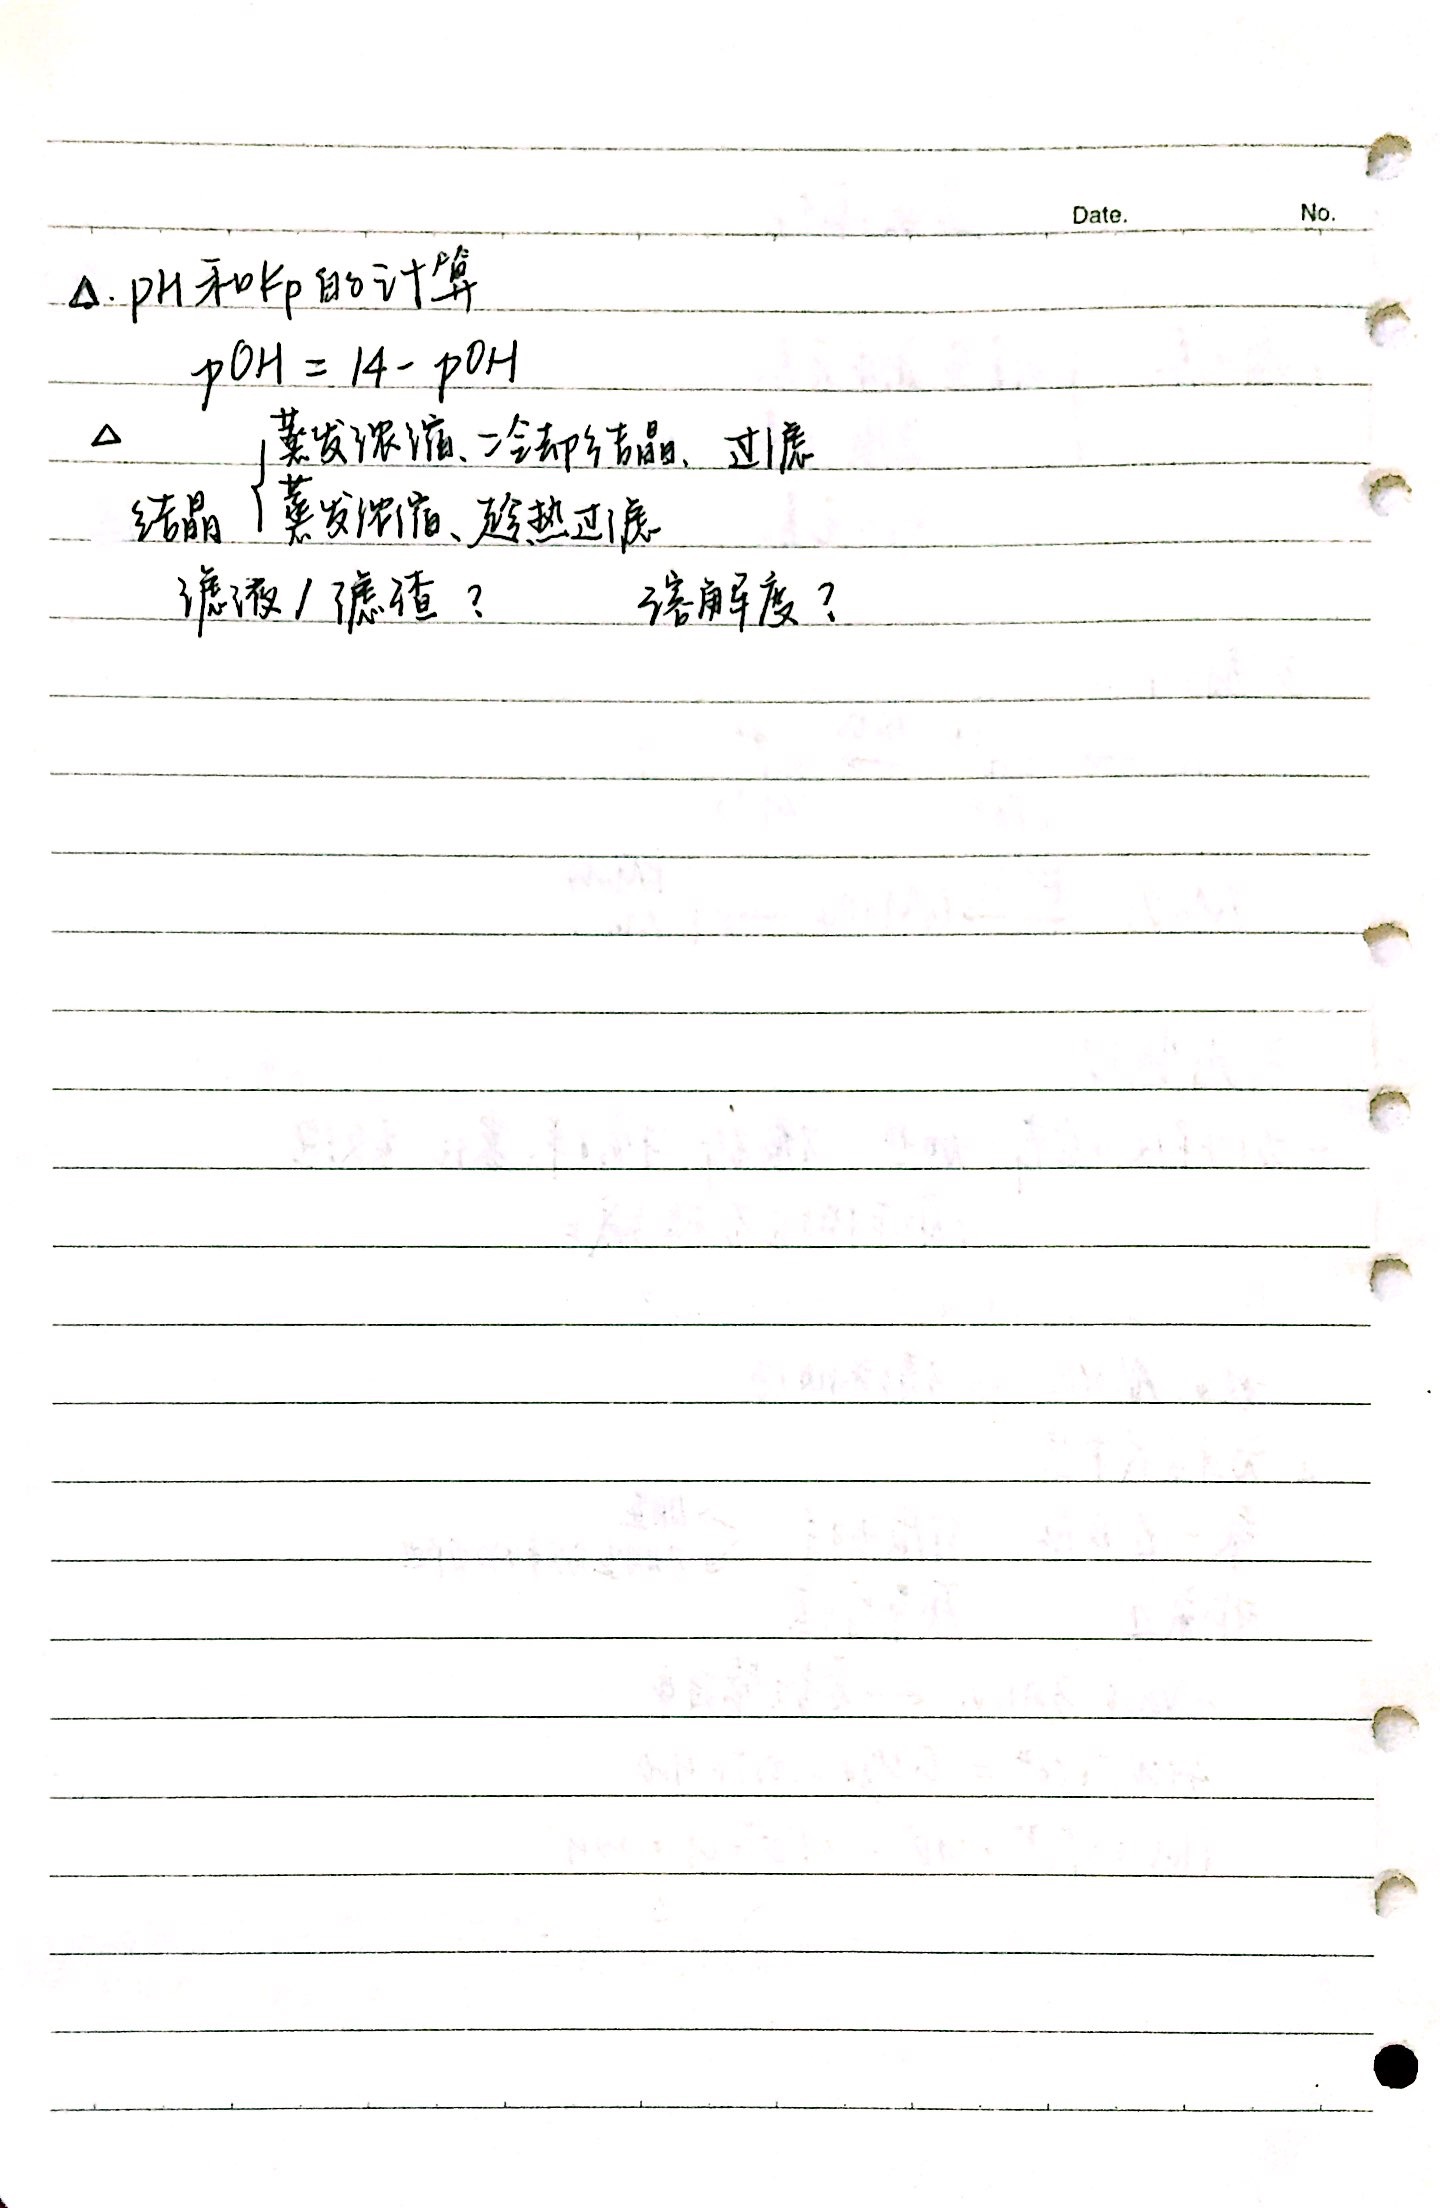 Date. No.
△. pH和Kp的计算
pOH = 14 - pOH
△ 蒸发浓缩、冷却结晶、过滤
结晶 { 蒸发浓缩、趁热过滤
滤液 / 滤渣? 溶解度?